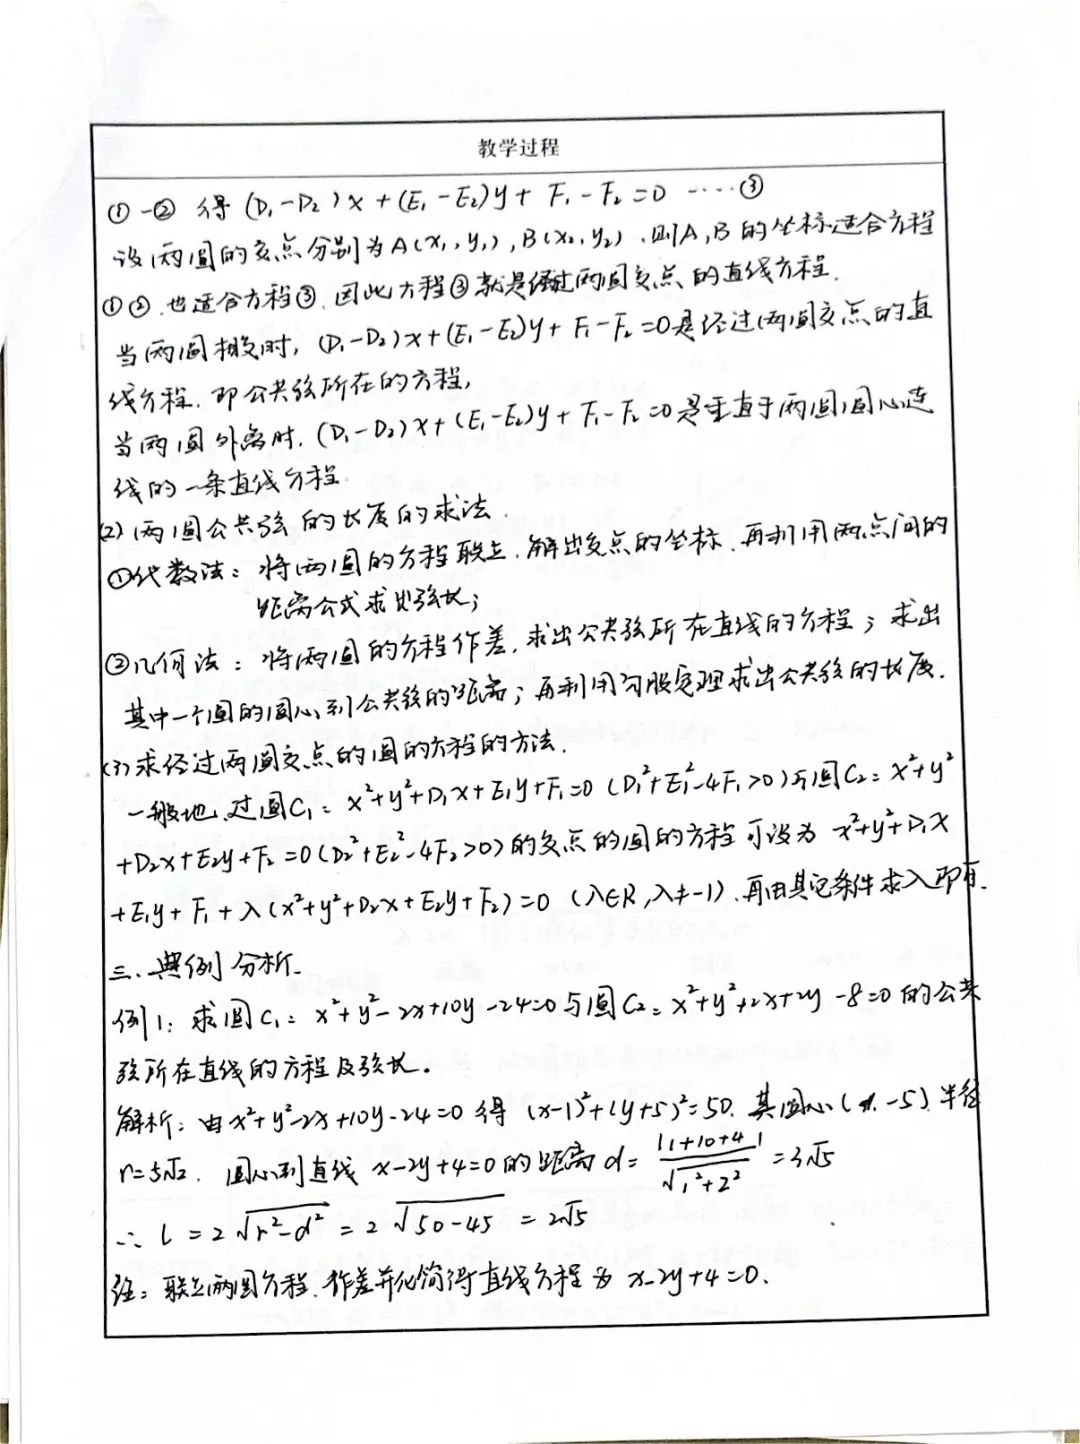 教学过程
①-② 得 (D₁-D₂)x+(E₁-E₂)y+F₁-F₂=0 ……③
设两圆的交点分别为A(x₁,y₁),B(x₂,y₂).则A,B的坐标适合方程
①②.也适合方程③.因此方程③就是经过两圆交点的直线方程.
当两圆相交时,(D₁-D₂)x+(E₁-E₂)y+F₁-F₂=0是经过两圆交点的直
线方程.即公共弦所在的方程,
当两圆外离时.(D₁-D₂)x+(E₁-E₂)y+F₁-F₂=0是垂直于两圆圆心连
线的一条直线方程.
(2)两圆公共弦的长度的求法.
①代数法:将两圆的方程联立.解出交点的坐标.再利用两点间的
距离公式求出弦长;
②几何法:将两圆的方程作差,求出公共弦所在直线的方程;求出
其中一个圆的圆心到公共弦的距离;再利用勾股定理求出公共弦的长度.
(3)求经过两圆交点的圆的方程的方法.
一般地.过圆C₁:x²+y²+D₁x+E₁y+F₁=0(D₁²+E₁²-4F₁>0)与圆C₂:x²+y²
+D₂x+E₂y+F₂=0(D₂²+E₂²-4F₂>0)的交点的圆的方程可设为 x²+y²+D₁x
+E₁y+F₁+λ(x²+y²+D₂x+E₂y+F₂)=0 (λ∈R,λ≠-1).再由其它条件求λ即可.
三.典例分析.
例1:求圆C₁:x²+y²-2x+10y-24=0与圆C₂:x²+y²+2x+2y-8=0的公共
弦所在直线的方程及弦长。
解析:由x²+y²-2x+10y-24=0得 (x-1)²+(y+5)²=50.其圆心(1,-5).半径
r=5√2. 圆心到直线 x-2y+4=0的距离d=|1+10+4|/√(1²+2²)=3√5
∴ l=2√(r²-d²)=2√(50-45)=2√5
注:联立两圆方程.作差并化简得直线方程为x-2y+4=0.